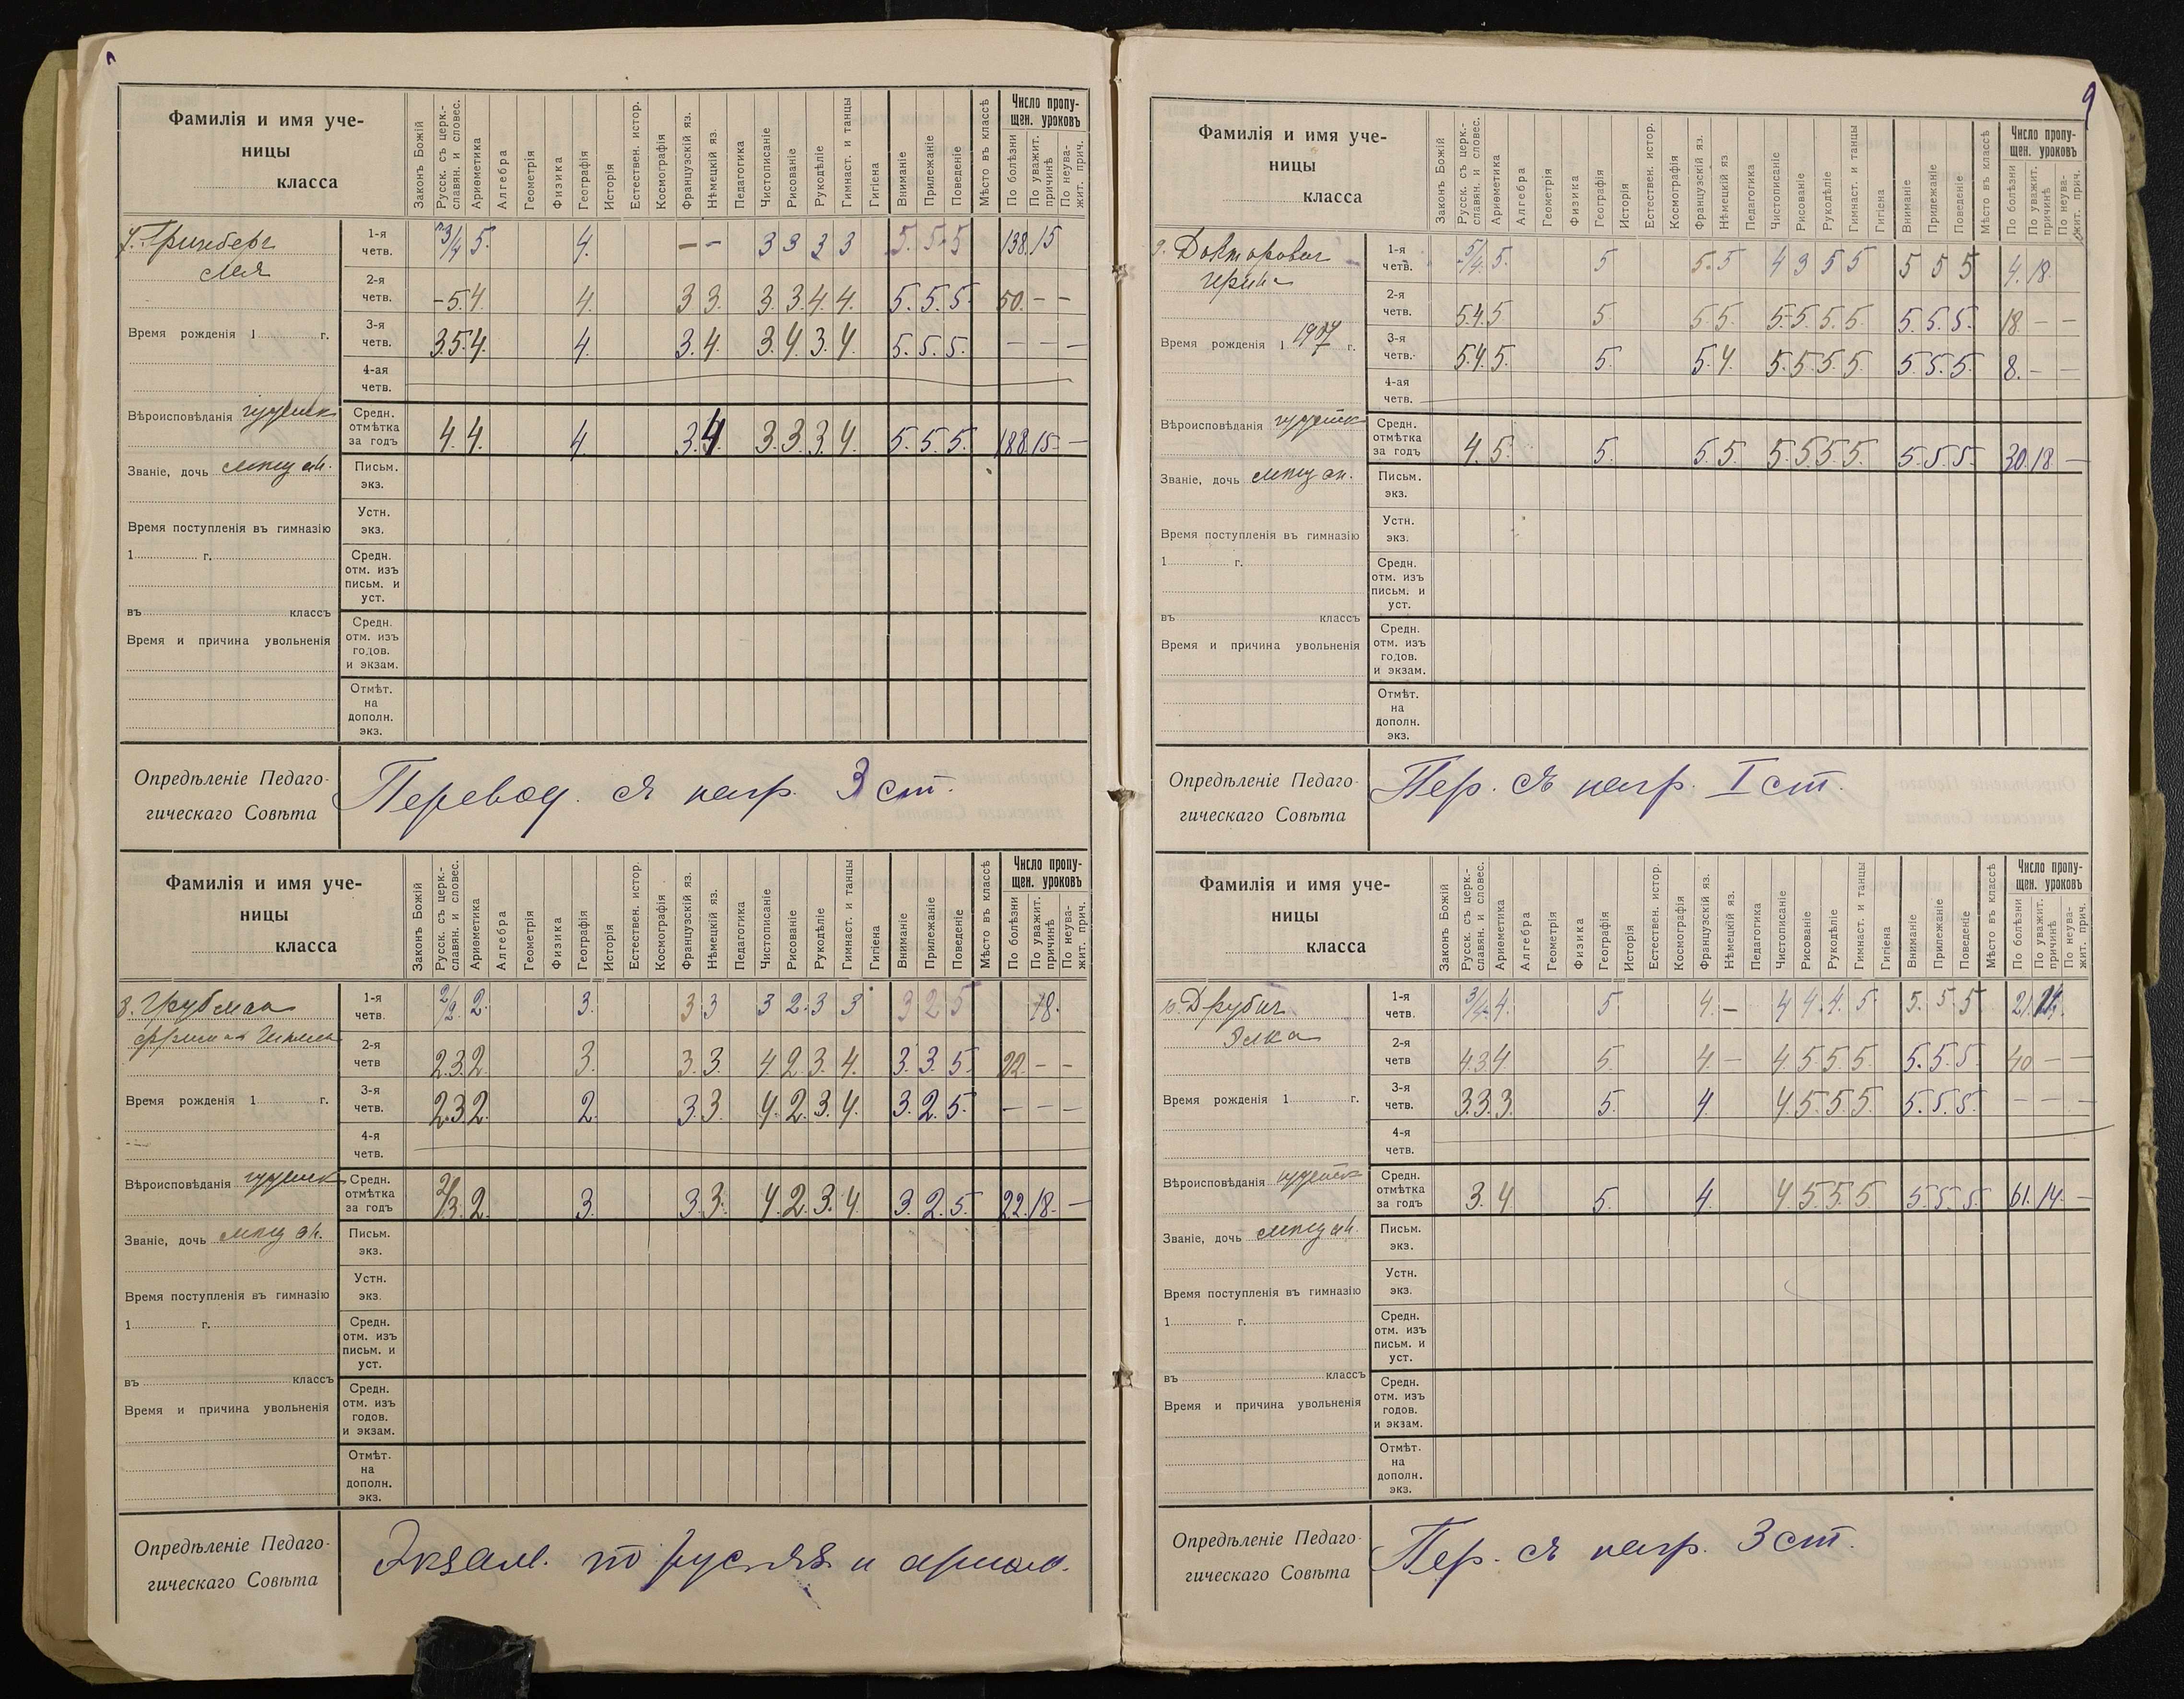 9
Фамилія и имя уче-
ницы
класса
Законъ Божій
Русск. съ церк.-
славян. и словес.
Ариѳметика
Алгебра
Геометрія
Физика
Географія
Исторія
Естествен. истор.
Космографія
Французскій яз.
Нѣмецкій яз.
Педагогика
Чистописаніе
Рисованіе
Рукодѣліе
Гимнаст. и танцы
Гигіена
Вниманіе
Прилежаніе
Поведеніе
Мѣсто въ классѣ
Число пропу-
щен. уроковъ
По болѣзни
По уважит.
причинѣ
По неува-
жит. прич.
7. Гринберг
Лея
1-я четв. 3/4 5. 4. – – 3 3 3 3 5. 5. 5 138. 15
2-я четв. – 5. 4. 4. 3 3. 3. 3. 4 4. 5. 5. 5. 50. – –
Время рожденія 1 г.
3-я четв. 3. 5. 4. 4. 3. 4. 3. 4. 3. 4. 5. 5. 5. – – –
4-ая четв.
Вѣроисповѣданія иудейск
Средн. отмѣтка за годъ 4. 4. 4 3. 4. 3. 3. 3. 4 5. 5. 5. 188. 15. –
Званіе, дочь мѣщан.
Письм. экз.
Время поступленія въ гимназію
1 г.
Устн. экз.
Средн. отм. изъ письм. и уст.
въ классъ
Время и причина увольненія
Средн. отм. изъ годов. и экзам.
Отмѣт. на дополн. экз.
Опредѣленіе Педаго-
гическаго Совѣта
Перевод. съ нагр. 3 ст.
Фамилія и имя уче-
ницы
класса
Законъ Божій
Русск. съ церк.-
славян. и словес.
Ариѳметика
Алгебра
Геометрія
Физика
Географія
Исторія
Естествен. истор.
Космографія
Французскій яз.
Нѣмецкій яз.
Педагогика
Чистописаніе
Рисованіе
Рукодѣліе
Гимнаст. и танцы
Гигіена
Вниманіе
Прилежаніе
Поведеніе
Мѣсто въ классѣ
Число пропу-
щен. уроковъ
По болѣзни
По уважит.
причинѣ
По неува-
жит. прич.
8. Грубман
1-я четв. 2/2. 2. 3. 3 3 3 2. 3 3 3 2 5 18.
2-я четв 2. 3. 2. 3. 3. 3. 4. 2. 3. 4. 3. 3. 5. 22. – –
Время рожденія 1 г.
3-я четв. 2. 3. 2. 2. 3. 3. 4. 2. 3. 4. 3. 2. 5. – – –
4-я четв.
Вѣроисповѣданія иудейск
Средн. отмѣтка за годъ 2/3. 2. 3. 3 3. 4. 2. 3. 4 3. 2. 5. 22. 18. –
Званіе, дочь мѣщан.
Письм. экз.
Время поступленія въ гимназію
1 г.
Устн. экз.
Средн. отм. изъ письм. и уст.
въ классъ
Время и причина увольненія
Средн. отм. изъ годов. и экзам.
Отмѣт. на дополн. экз.
Опредѣленіе Педаго-
гическаго Совѣта
Экзам. по русск яз. и арифм.
Фамилія и имя уче-
ницы
класса
Законъ Божій
Русск. съ церк.-
славян. и словес.
Ариѳметика
Алгебра
Геометрія
Физика
Географія
Исторія
Естествен. истор.
Космографія
Французскій яз.
Нѣмецкій яз
Педагогика
Чистописаніе
Рисованіе
Рукодѣліе
Гимнаст. и танцы
Гигіена
Вниманіе
Прилежаніе
Поведеніе
Мѣсто въ классѣ
Число пропу-
щен. уроковъ
По болѣзни
По уважит.
причинѣ
По неува-
жит. прич.
9. Докторович
1-я четв. 5/4. 5. 5 5. 5 4 3 5 5 5 5 5 4. 18.
2-я четв. 5. 4. 5 5. 5 5. 5. 5. 5. 5. 5. 5. 5. 18. – –
Время рожденія 1907 г.
3-я четв. 5. 4. 5. 5. 5. 4. 5. 5. 5. 5. 5. 5. 5. 8. – –
4-ая четв.
Вѣроисповѣданія иудейск
Средн. отмѣтка за годъ 4. 5. 5. 5 5. 5. 5. 5. 5. 5. 5. 5. 30. 18. –
Званіе, дочь мѣщан.
Письм. экз.
Время поступленія въ гимназію
1 г.
Устн. экз.
Средн. отм. изъ письм. и уст.
въ классъ
Время и причина увольненія
Средн. отм. изъ годов. и экзам.
Отмѣт. на дополн. экз.
Опредѣленіе Педаго-
гическаго Совѣта
Пер. съ нагр. I ст.
Фамилія и имя уче-
ницы
класса
Законъ Божій
Русск. съ церк.-
славян. и словес.
Ариѳметика
Алгебра
Геометрія
Физика
Географія
Исторія
Естествен. истор.
Космографія
Французскій яз.
Нѣмецкій яз.
Педагогика
Чистописаніе
Рисованіе
Рукодѣліе
Гимнаст. и танцы
Гигіена
Вниманіе
Прилежаніе
Поведеніе
Мѣсто въ классѣ
Число пропу-
щен. уроковъ
По болѣзни
По уважит.
причинѣ
По неува-
жит. прич.
10. Друбич
Элка
1-я четв. 3/4. 4. 5. 4. – 4 4. 4. 5 5. 5 5 21.
2-я четв 4. 3. 4 5. 4. – 4. 5. 5 5 5. 5. 5 40 – –
Время рожденія 1 г.
3-я четв. 3. 3. 3. 5. 4. 4. 5. 5. 5. 5. 5. 5. – – –
4-я четв.
Вѣроисповѣданія иудейск
Средн. отмѣтка за годъ 3. 4. 5. 4. 4. 5. 5. 5 5. 5. 5. 61. 14. –
Званіе, дочь мѣщан.
Письм. экз.
Время поступленія въ гимназію
1 г.
Устн. экз.
Средн. отм. изъ письм. и уст.
въ классъ
Время и причина увольненія
Средн. отм. изъ годов. и экзам.
Отмѣт. на дополн. экз.
Опредѣленіе Педаго-
гическаго Совѣта
Пер. съ нагр. 3 ст.